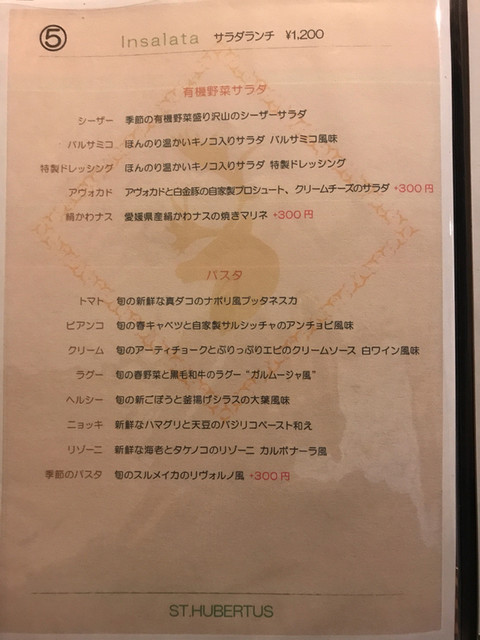 ⑤ Insalata サラダランチ ¥1,200
有機野菜サラダ
シーザー 季節の有機野菜盛り沢山のシーザーサラダ
バルサミコ ほんのり温かいキノコ入りサラダ バルサミコ風味
特製ドレッシング ほんのり温かいキノコ入りサラダ 特製ドレッシング
アヴォカド アヴォカドと白金豚の自家製プロシュート、クリームチーズのサラダ +300円
絹かわナス 愛媛県産絹かわナスの焼きマリネ +300円
パスタ
トマト 旬の新鮮な真ダコのナポリ風プッタネスカ
ビアンコ 旬の春キャベツと自家製サルシッチャのアンチョビ風味
クリーム 旬のアーティチョークとぷりっぷりエビのクリームソース 白ワイン風味
ラグー 旬の春野菜と黒毛和牛のラグー "ガルムージャ風"
ヘルシー 旬の新ごぼうと釜揚げシラスの大葉風味
ニョッキ 新鮮なハマグリと天豆のバジリコペースト和え
リゾーニ 新鮮な海老とタケノコのリゾーニ カルボナーラ風
季節のパスタ 旬のスルメイカのリヴォルノ風 +300円
ST.HUBERTUS